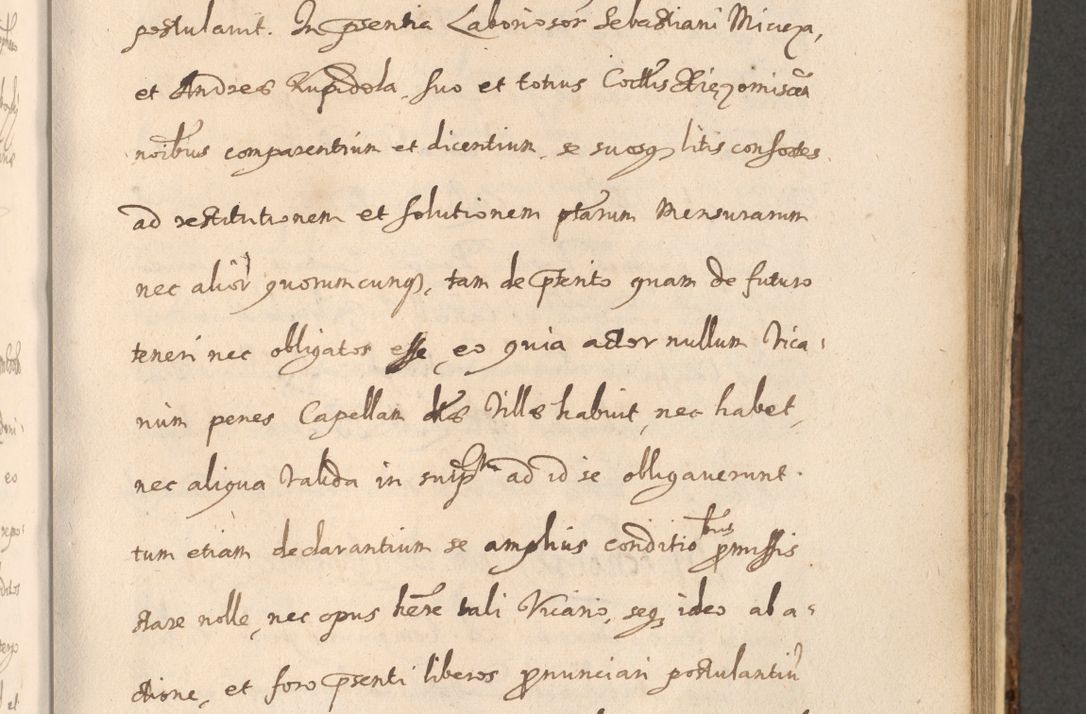 postulavit. In psentia LaborioSor Sebastiani Miciepa,
et Andreæ Kupidola, suo et totius Coittis
noibus comparentium et dicentium, se suosq litis consortes
ad restitutionem et solutionem ptarum Mensurarum
nec alior quorumcunq, tam de pterito quam de futuro
teneri nec obligatos esse, eo quia actor nullum Vica-
rium penes Capellam dtæ Villæ habuit, nec habet,
nec aliqua valida in ad id se obligaverunt.
tum etiam declarantium se amplius conditiobus pmissis
stare nolle, nec opus here tali Vicario, seq, ideo ab a-
ctione, et foro psenti liberos pnunciari postulantiu